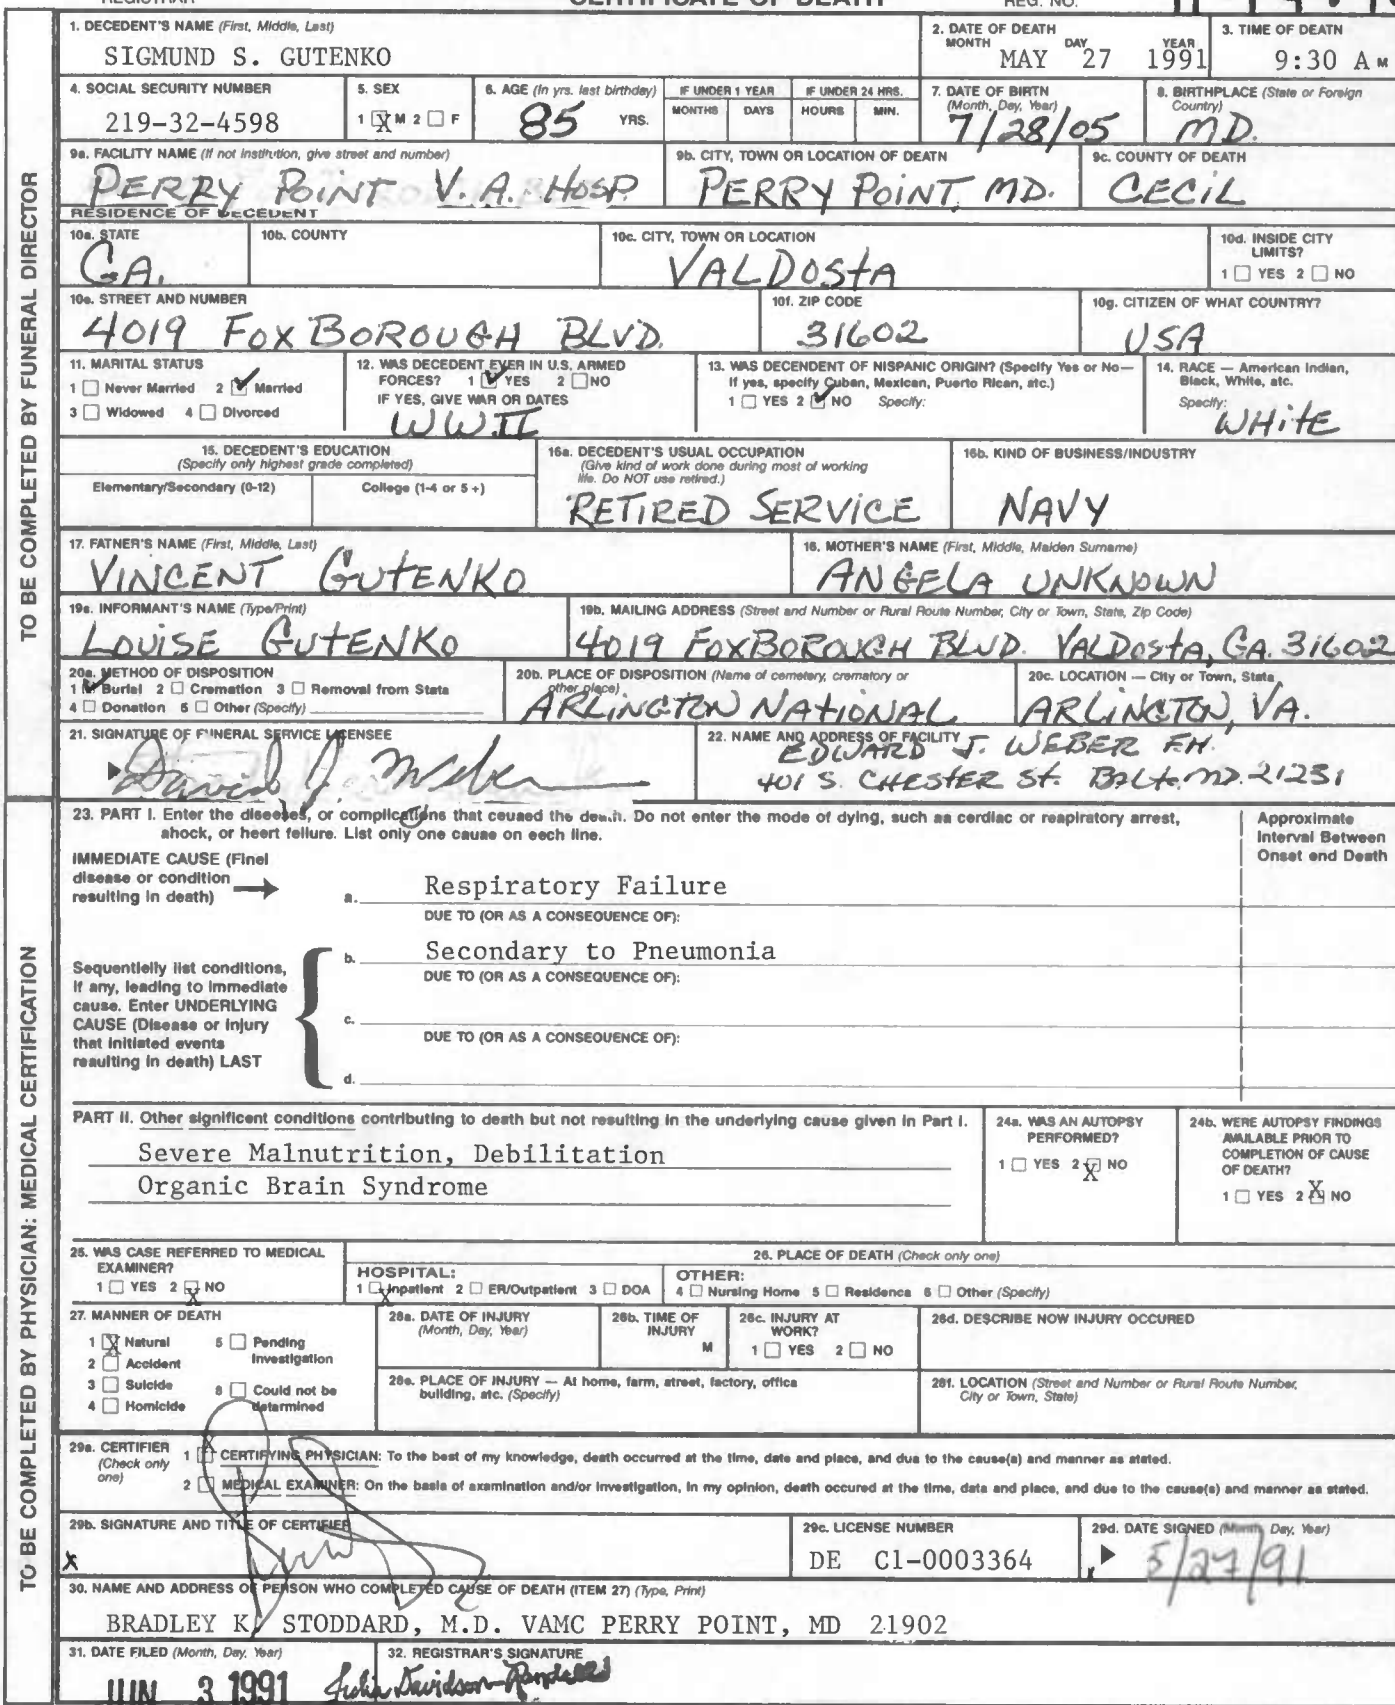 CERTIFICATE OF DEATH
REGISTRAR REG. NO.
1. DECEDENT'S NAME (First, Middle, Last)
SIGMUND S. GUTENKO
2. DATE OF DEATH
MONTH DAY YEAR
MAY 27 1991
3. TIME OF DEATH
9:30 A M
4. SOCIAL SECURITY NUMBER
219-32-4598
5. SEX
1 X M 2 F
6. AGE (In yrs. last birthday)
85 YRS.
IF UNDER 1 YEAR
MONTHS DAYS
IF UNDER 24 HRS.
HOURS MIN.
7. DATE OF BIRTH
(Month, Day, Year)
7/28/05
8. BIRTHPLACE (State or Foreign
Country)
MD.
9a. FACILITY NAME (If not institution, give street and number)
PERRY POINT V.A. HOSP.
9b. CITY, TOWN OR LOCATION OF DEATH
PERRY POINT, MD.
9c. COUNTY OF DEATH
CECIL
RESIDENCE OF DECEDENT
10a. STATE
GA.
10b. COUNTY
10c. CITY, TOWN OR LOCATION
VALDOSTA
10d. INSIDE CITY
LIMITS?
1 YES 2 NO
10e. STREET AND NUMBER
4019 FOXBOROUGH BLVD.
10f. ZIP CODE
31602
10g. CITIZEN OF WHAT COUNTRY?
USA
11. MARITAL STATUS
1 Never Married 2 ✓ Married
3 Widowed 4 Divorced
12. WAS DECEDENT EVER IN U.S. ARMED
FORCES? 1 ✓ YES 2 NO
IF YES, GIVE WAR OR DATES
WW II
13. WAS DECENDENT OF NISPANIC ORIGIN? (Specify Yes or No—
If yes, specify Cuban, Mexican, Puerto Rican, etc.)
1 YES 2 ✓ NO Specify:
14. RACE — American Indian,
Black, White, etc.
Specify:
WHITE
15. DECEDENT'S EDUCATION
(Specify only highest grade completed)
Elementary/Secondary (0-12) College (1-4 or 5+)
16a. DECEDENT'S USUAL OCCUPATION
(Give kind of work done during most of working
life. Do NOT use retired.)
RETIRED SERVICE
16b. KIND OF BUSINESS/INDUSTRY
NAVY
17. FATNER'S NAME (First, Middle, Last)
VINCENT GUTENKO
18. MOTHER'S NAME (First, Middle, Maiden Surname)
ANGELA UNKNOWN
19a. INFORMANT'S NAME (Type/Print)
LOUISE GUTENKO
19b. MAILING ADDRESS (Street and Number or Rural Route Number, City or Town, State, Zip Code)
4019 FOXBOROUGH BLVD. VALDOSTA, GA. 31602
20a. METHOD OF DISPOSITION
1 ✓ Burial 2 Cremation 3 Removal from State
4 Donation 5 Other (Specify)
20b. PLACE OF DISPOSITION (Name of cemetery, crematory or
other place)
ARLINGTON NATIONAL
20c. LOCATION — City or Town, State
ARLINGTON, VA.
21. SIGNATURE OF FUNERAL SERVICE LICENSEE
David J. Weber
22. NAME AND ADDRESS OF FACILITY
EDWARD J. WEBER F.H.
401 S. CHESTER ST. BALT. MD. 21231
TO BE COMPLETED BY FUNERAL DIRECTOR
23. PART I. Enter the diseases, or complications that caused the death. Do not enter the mode of dying, such as cardiac or respiratory arrest,
shock, or heart failure. List only one cause on each line.
Approximate
Interval Between
Onset and Death
IMMEDIATE CAUSE (Final
disease or condition
resulting in death)
a. Respiratory Failure
DUE TO (OR AS A CONSEQUENCE OF):
Sequentially list conditions,
if any, leading to immediate
cause. Enter UNDERLYING
CAUSE (Disease or injury
that initiated events
resulting in death) LAST
b. Secondary to Pneumonia
DUE TO (OR AS A CONSEQUENCE OF):
c.
DUE TO (OR AS A CONSEQUENCE OF):
d.
PART II. Other significant conditions contributing to death but not resulting in the underlying cause given in Part I.
Severe Malnutrition, Debilitation
Organic Brain Syndrome
24a. WAS AN AUTOPSY
PERFORMED?
1 YES 2 X NO
24b. WERE AUTOPSY FINDINGS
AVAILABLE PRIOR TO
COMPLETION OF CAUSE
OF DEATH?
1 YES 2 X NO
25. WAS CASE REFERRED TO MEDICAL
EXAMINER?
1 YES 2 X NO
26. PLACE OF DEATH (Check only one)
HOSPITAL:
1 X Inpatient 2 ER/Outpatient 3 DOA
OTHER:
4 Nursing Home 5 Residence 6 Other (Specify)
27. MANNER OF DEATH
1 X Natural 5 Pending
Investigation
2 Accident
3 Suicide 8 Could not be
determined
4 Homicide
28a. DATE OF INJURY
(Month, Day, Year)
28b. TIME OF
INJURY
M
28c. INJURY AT
WORK?
1 YES 2 NO
28d. DESCRIBE NOW INJURY OCCURED
28e. PLACE OF INJURY — At home, farm, street, factory, office
building, etc. (Specify)
28f. LOCATION (Street and Number or Rural Route Number,
City or Town, State)
29a. CERTIFIER
(Check only
one)
1 X CERTIFYING PHYSICIAN: To the best of my knowledge, death occurred at the time, date and place, and due to the cause(s) and manner as stated.
2 MEDICAL EXAMINER: On the basis of examination and/or investigation, in my opinion, death occured at the time, data and place, and due to the cause(s) and manner as stated.
29b. SIGNATURE AND TITLE OF CERTIFIER
X
29c. LICENSE NUMBER
DE C1-0003364
29d. DATE SIGNED (Month, Day, Year)
5/27/91
30. NAME AND ADDRESS OF PERSON WHO COMPLETED CAUSE OF DEATH (ITEM 27) (Type, Print)
BRADLEY K. STODDARD, M.D. VAMC PERRY POINT, MD 21902
31. DATE FILED (Month, Day, Year)
JUN 3 1991
32. REGISTRAR'S SIGNATURE
Julia Davidson-Randall
TO BE COMPLETED BY PHYSICIAN: MEDICAL CERTIFICATION